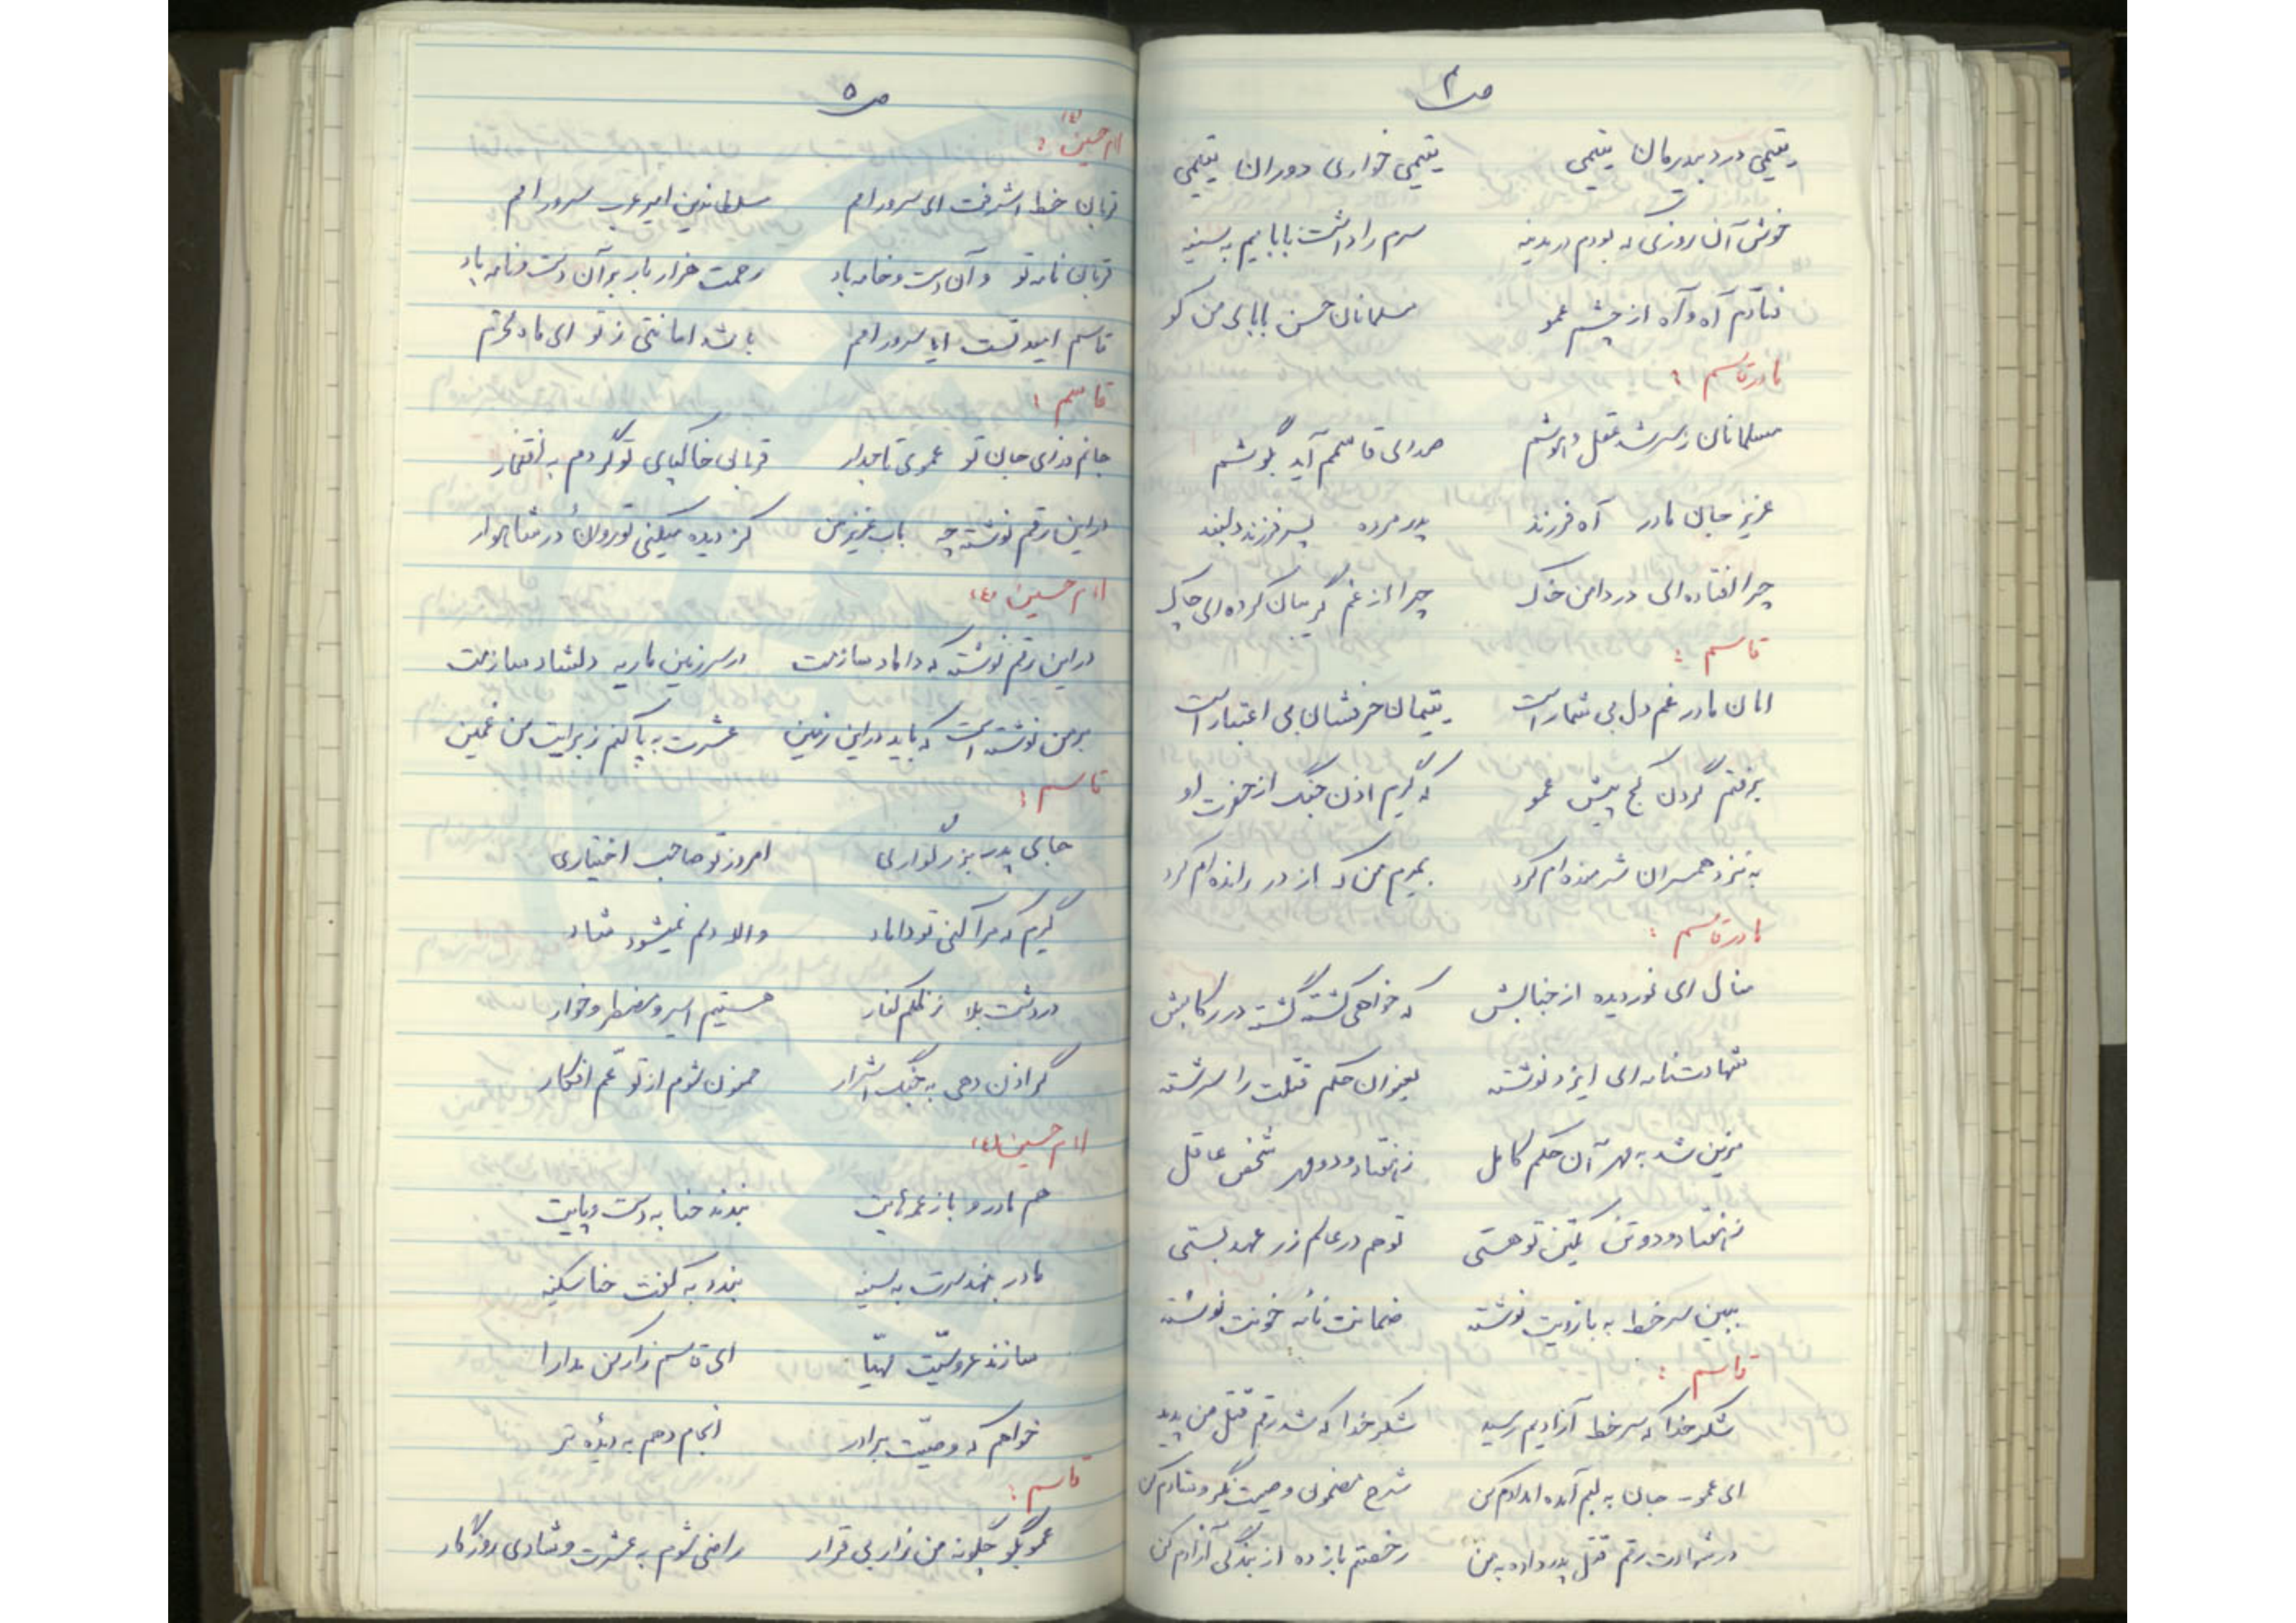 ص ۴
یتیمی درد بیدرمان یتیمی یتیمی خواری دوران یتیمی
خوش آن روزی که بودم در مدینه سرم را داشت بابایم به سینه
فتادم آه و آه از چشم عمو مسلمانان حسن بابای من کو
مادر قاسم :
مسلمانان ز سر شد عقل و هوشم صدای قاسمم آید بگوشم
عزیز جان مادر آه فرزند پدر مرده پسر فرزند دلبند
چرا افتاده ای در دامن خاک چرا از غم گریبان کرده ای چاک
قاسم :
امان مادر غم دل بی شمار است یتیمان حرفشان بی اعتبار است
برفتم گردن کج پیش عمو که گیرم اذن جنگ از حضرت او
به نزد همسران شرمنده ام کرد بمیرم من که از در رانده ام کرد
مادر قاسم :
منال ای نوردیده از جنابش که خواهی کشته گشت در رکابش
شهادتنامه ای ایزد نوشته بعنوان حکم قتلت را سرشته
مزین شد به مهر آن حکم کامل ز هفتاد و دو مهر شخص عاقل
ز هفتاد و دو تن یکتن تو هستی تو هم در عالم زر عهد بستی
ببین سر خط به بازویت نوشته ضمانت نامه خونت نوشته
قاسم :
شکر خدا که سر خط آزادیم رسید شکر خدا که شد رقم قتل من پدید
ای عمو جان به لبم آمده امدادم کن شرح مضمون وصیت نگر و شادم کن
در شهادت رقم قتل پدر داده به من رخصتم باز ده از بندگی آزادم کن
ص ۵
امام حسین (ع) :
قربان خط اشرفت ای سرور امم سلطان دین امیر عرب سرور امم
قربان نامه تو و آن دست و خامه باد رحمت هزار بار بر آن دست و نامه باد
قاسم امید تست ایا سرور امم باشد امانتی ز تو ای ماه محترم
قاسم :
جانم فدای جان تو عموی تاجدار قربانی خاکپای تو گردم به افتخار
در این رقم نوشته چه باب عزیز من کز دیده میکنی تو روان در شاهوار
امام حسین (ع)
در این رقم نوشته که داماد سازمت در سرزمین ماریه دلشاد سازمت
بر من نوشته است که باید در این زمین عشرت به پا کنم ز برایت من غمین
قاسم :
جای پدر بزرگواری امروز تو صاحب اختیاری
گیرم که مرا کنی تو داماد والا دلم نمیشود شاد
در دشت بلا ز ظلم کفار هستیم اسیر و مضطر و خوار
گر اذن دهی به جنگ اشرار ممنون شوم از تو عم افکار
امام حسین (ع)
هم مادر و باز عمه هایت بندند حنا به دست و پایت
مادر بنهد سرت به سینه بندد به کفت حنا سکینه
سازند عروسیت مهیا ای قاسم زار کن مدارا
خواهم که وصیت برادر انجام دهم به دیده تر
قاسم :
عمو بگو چگونه من زار بی قرار راضی شوم به عشرت و شادی روزگار